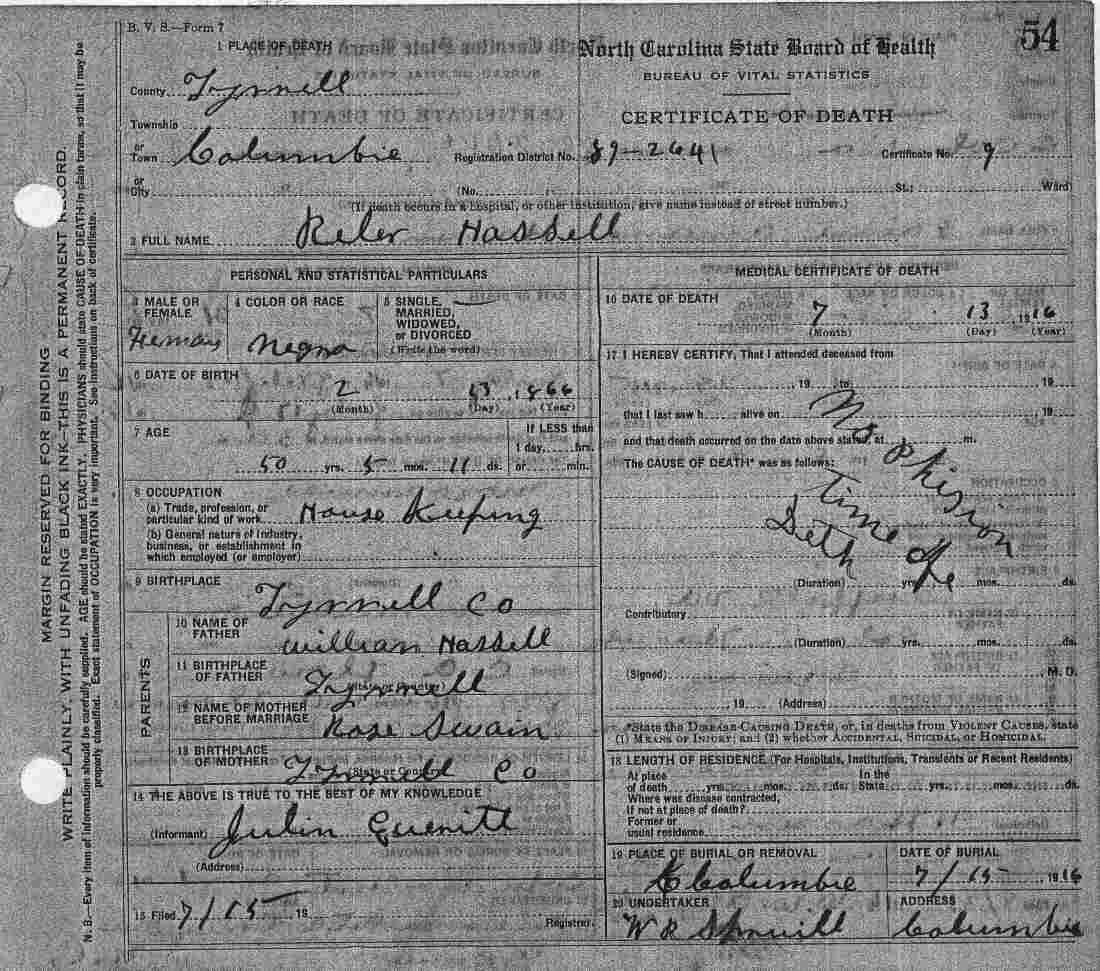 B. V. S.—Form 7
54
1 PLACE OF DEATH
North Carolina State Board of Health
BUREAU OF VITAL STATISTICS
CERTIFICATE OF DEATH
County Tyrrell
Township
or Town Columbie Registration District No. 89-2641 Certificate No. 9
or City (No. St.; Ward)
(If death occurs in a hospital, or other institution, give name instead of street number.)
2 FULL NAME Hassell
PERSONAL AND STATISTICAL PARTICULARS
3 MALE OR FEMALE
4 COLOR OR RACE Negro
5 SINGLE, MARRIED, WIDOWED, or DIVORCED (Write the word)
6 DATE OF BIRTH
2 13, 1866
(Month) (Day) (Year)
7 AGE
If LESS than
1 day, hrs.
50 yrs. 5 mos. 11 ds. or min.
8 OCCUPATION
(a) Trade, profession, or
particular kind of work House Keeping
(b) General nature of industry,
business, or establishment in
which employed (or employer)
9 BIRTHPLACE
Tyrrell Co
PARENTS
10 NAME OF FATHER
William Hassell
11 BIRTHPLACE OF FATHER
Tyrrell
12 NAME OF MOTHER BEFORE MARRIAGE
Rose Swain
13 BIRTHPLACE OF MOTHER
(State or Country)
Tyrrell Co
14 THE ABOVE IS TRUE TO THE BEST OF MY KNOWLEDGE
(Informant)
(Address)
15 Filed 7/15 19
Registrar.
MEDICAL CERTIFICATE OF DEATH
16 DATE OF DEATH
7 13, 1916
(Month) (Day) (Year)
17 I HEREBY CERTIFY, That I attended deceased from
19 to 19
that I last saw h alive on 19
and that death occurred on the date above stated, at m.
The CAUSE OF DEATH* was as follows:
No Phision
Time of
Deth
(Duration) yrs. mos. ds.
Contributory
(Duration) yrs. mos. ds.
(Signed) M. D.
19 (Address)
*State the DISEASE CAUSING DEATH, or, in deaths from VIOLENT CAUSES, state
(1) MEANS OF INJURY; and (2) whether ACCIDENTAL, SUICIDAL, OR HOMICIDAL.
18 LENGTH OF RESIDENCE (For Hospitals, Institutions, Transients or Recent Residents)
At place In the
of death yrs. mos. ds. State yrs. mos. ds.
Where was disease contracted,
If not at place of death?
Former or
usual residence
19 PLACE OF BURIAL OR REMOVAL
Columbie
DATE OF BURIAL
7/15 1916
20 UNDERTAKER
W R Spruill
ADDRESS
Columbie
MARGIN RESERVED FOR BINDING
WRITE PLAINLY, WITH UNFADING BLACK INK—THIS IS A PERMANENT RECORD.
N. B.—Every item of information should be carefully supplied. AGE should be stated EXACTLY. PHYSICIANS should state CAUSE OF DEATH in plain terms, so that it may be
properly classified. Exact statement of OCCUPATION is very important. See instructions on back of certificate.